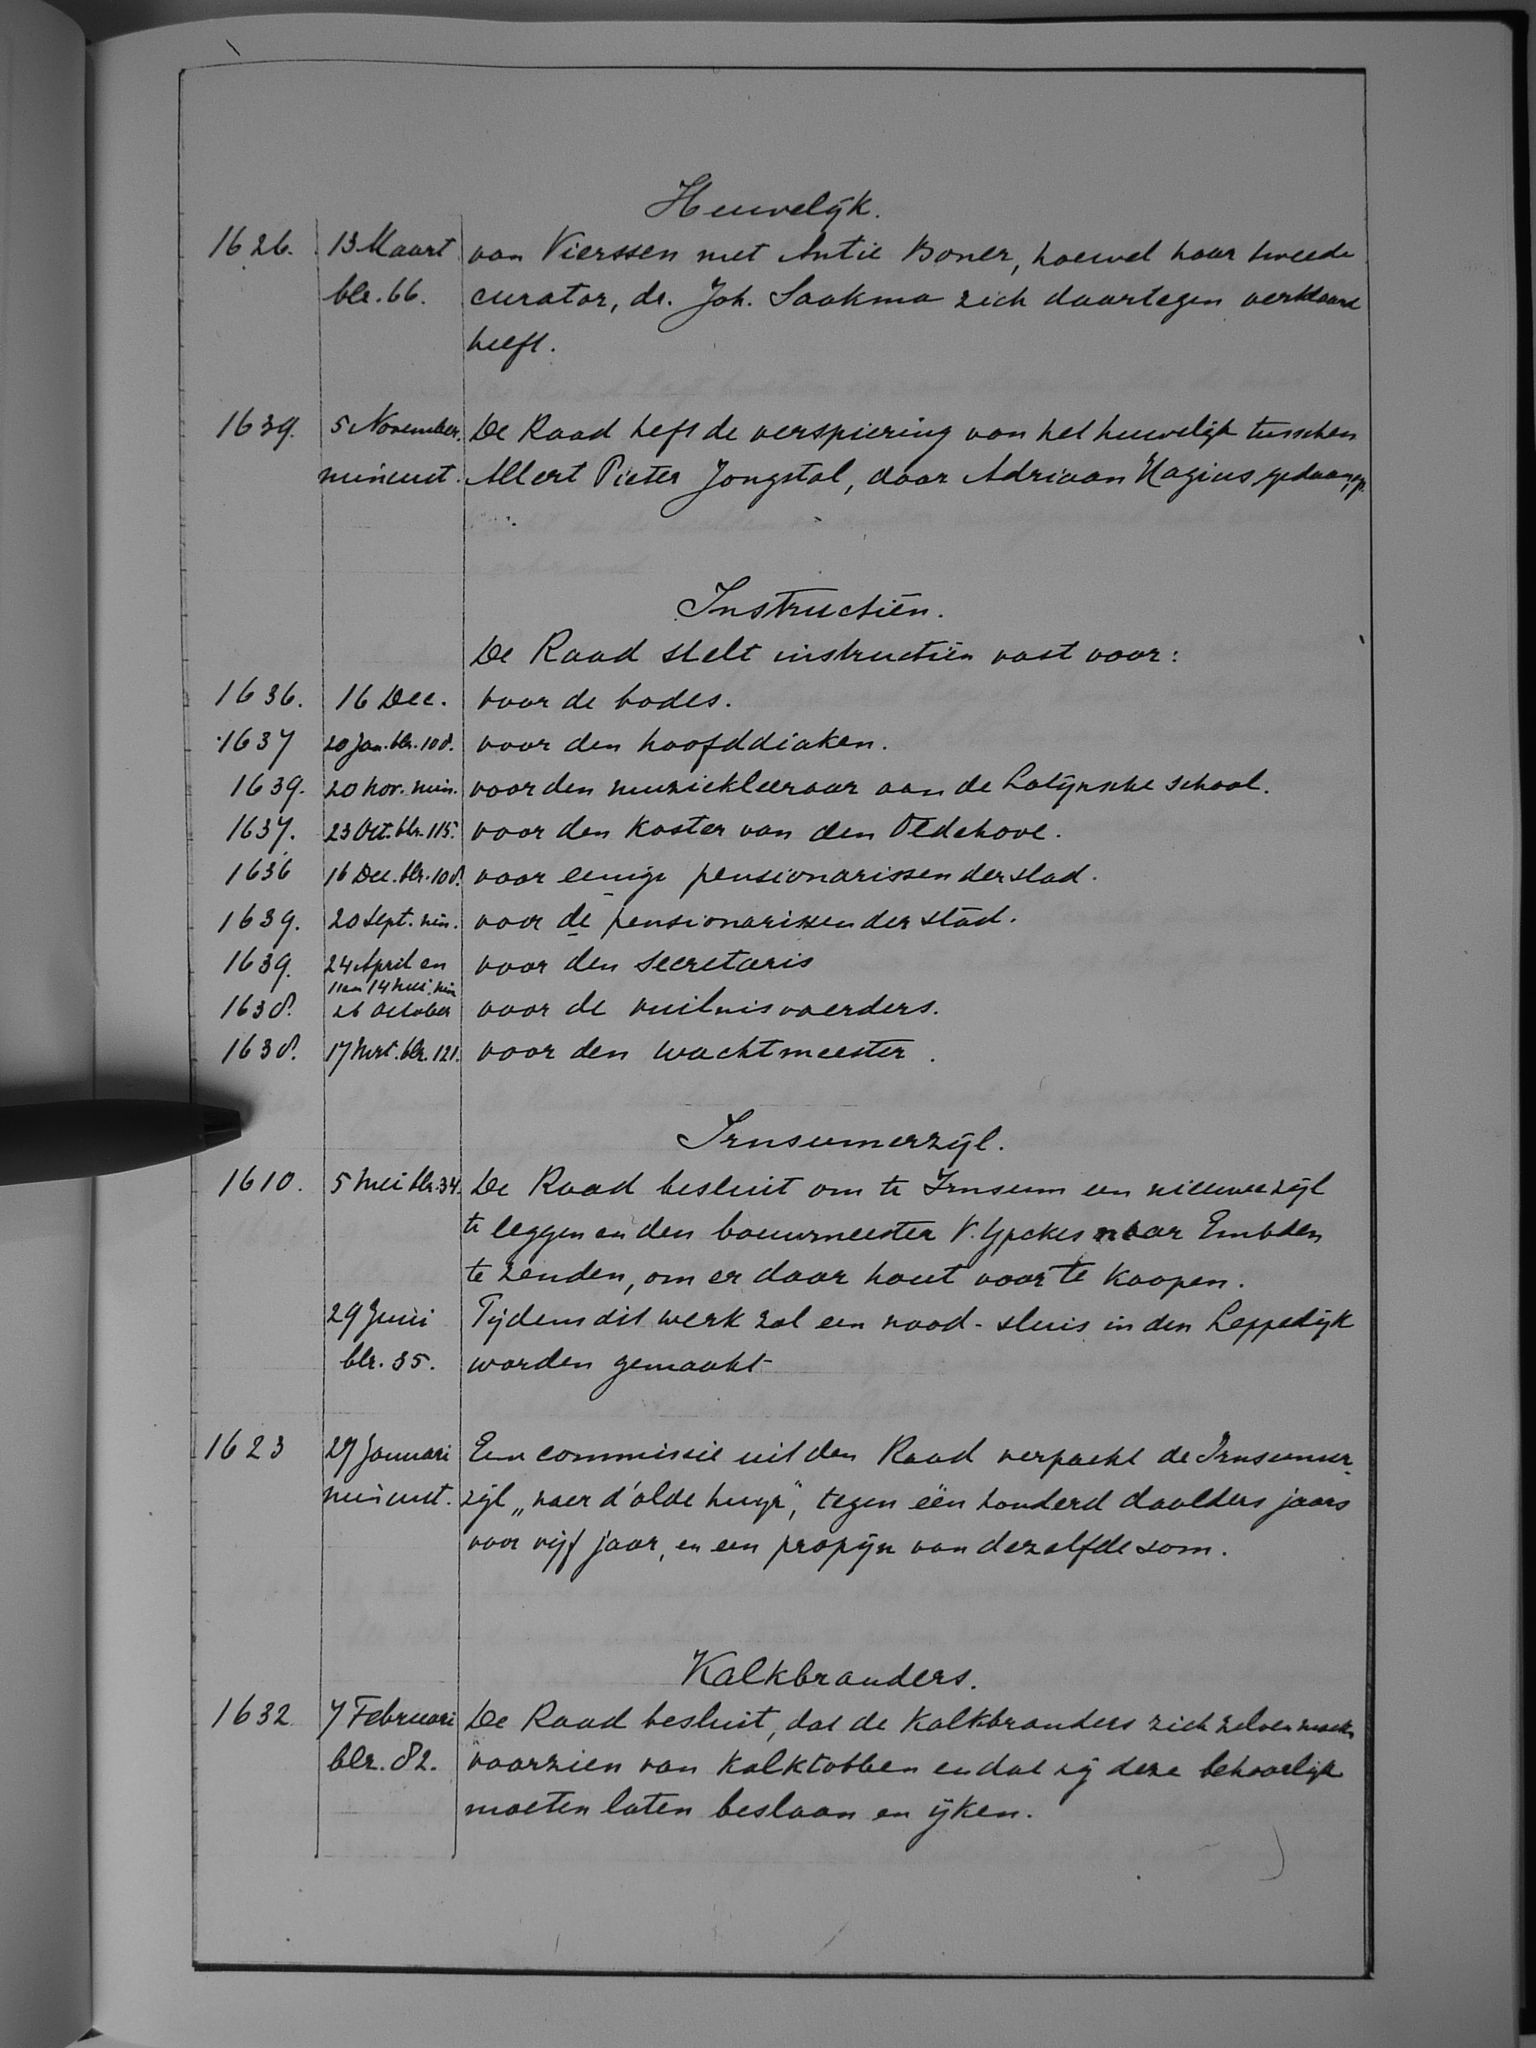 Huwelijk.
1626. 13 Maart van Vierssen met Antie Boner, hoewel haar tweede
blz. 66. curator, dr. Joh. Saakma zich daartegen verklaard
heeft.
1639. 5 November. De Raad heft de verspiering van het huwelijk tusschen
minuut. Allert Pieter Jongstal, door Adriaan Hagius gedaan, op.
Instructiën.
De Raad stelt instructiën vast voor:
1636. 16 Dec. voor de bodes.
1637 20 Jan. blz. 108. voor den hoofddiaken.
1639. 20 Nov. min. voor den muziekleeraar aan de Latijnsche school.
1637. 23 Oct. blz. 115. voor den koster van den Oldehove.
1636 16 Dec. blz. 108. voor eenige pensionarissen der stad.
1639. 20 Sept. min. voor de pensionarissen der stad.
1639. 24 April en voor den secretaris
11 en 14 Mei. min
1638. 26 October voor de vuilnisvoerders.
1638. 17 Mrt. blz. 121. voor den wachtmeester.
Irnsumerzijl.
1610. 5 Mei blz. 34. De Raad besluit om te Irnsum een nieuwe zijl
te leggen en den bouwmeester V. Ypckes naar Embden
te zenden, om er daar hout voor te koopen.
29 Juni Tijdens dit werk zal een nood-sluis in den Leppedijk
blz. 35. worden gemaakt
1623 27 Januari Een commissie uit den Raad verpacht de Irnsumer-
minuut. zijl „naer d'olde huyr", tegen één honderd daalders jaars
voor vijf jaar, en een propijn van dezelfde som.
Kalkbranders.
1632 7 Februari De Raad besluit, dat de kalkbranders zich zelven moeten
blz. 82. voorzien van kalktobben en dat zij deze behoorlijk
moeten laten beslaan en ijken.